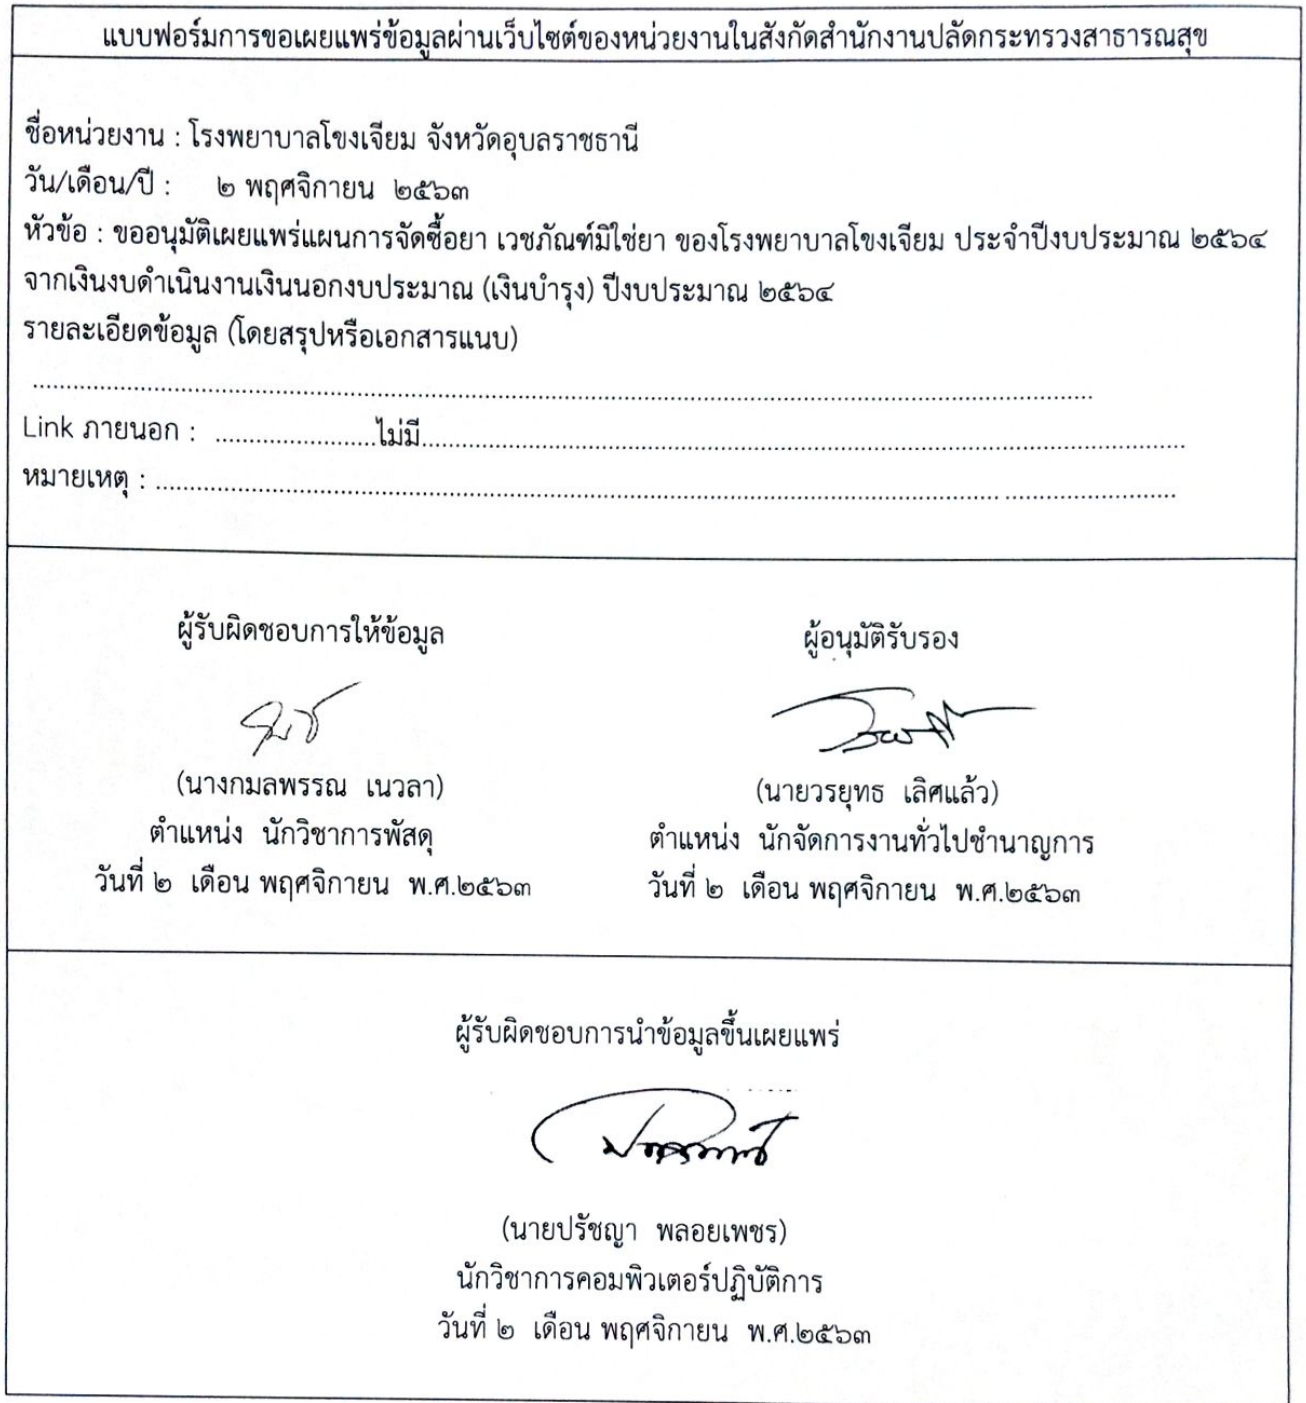 แบบฟอร์มการขอเผยแพร่ข้อมูลผ่านเว็บไซต์ของหน่วยงานในสังกัดสำนักงานปลัดกระทรวงสาธารณสุข
ชื่อหน่วยงาน : โรงพยาบาลโขงเจียม จังหวัดอุบลราชธานี
วัน/เดือน/ปี : ๒ พฤศจิกายน ๒๕๖๓
หัวข้อ : ขออนุมัติเผยแพร่แผนการจัดซื้อยา เวชภัณฑ์มิใช่ยา ของโรงพยาบาลโขงเจียม ประจำปีงบประมาณ ๒๕๖๔
จากเงินงบดำเนินงานเงินนอกงบประมาณ (เงินบำรุง) ปีงบประมาณ ๒๕๖๔
รายละเอียดข้อมูล (โดยสรุปหรือเอกสารแนบ)
Link ภายนอก : ........................ไม่มี........................
หมายเหตุ : ........................
ผู้รับผิดชอบการให้ข้อมูล
(นางกมลพรรณ เนวลา)
ตำแหน่ง นักวิชาการพัสดุ
วันที่ ๒ เดือน พฤศจิกายน พ.ศ.๒๕๖๓
ผู้อนุมัติรับรอง
(นายวรยุทธ เลิศแล้ว)
ตำแหน่ง นักจัดการงานทั่วไปชำนาญการ
วันที่ ๒ เดือน พฤศจิกายน พ.ศ.๒๕๖๓
ผู้รับผิดชอบการนำข้อมูลขึ้นเผยแพร่
(นายปรัชญา พลอยเพชร)
นักวิชาการคอมพิวเตอร์ปฏิบัติการ
วันที่ ๒ เดือน พฤศจิกายน พ.ศ.๒๕๖๓